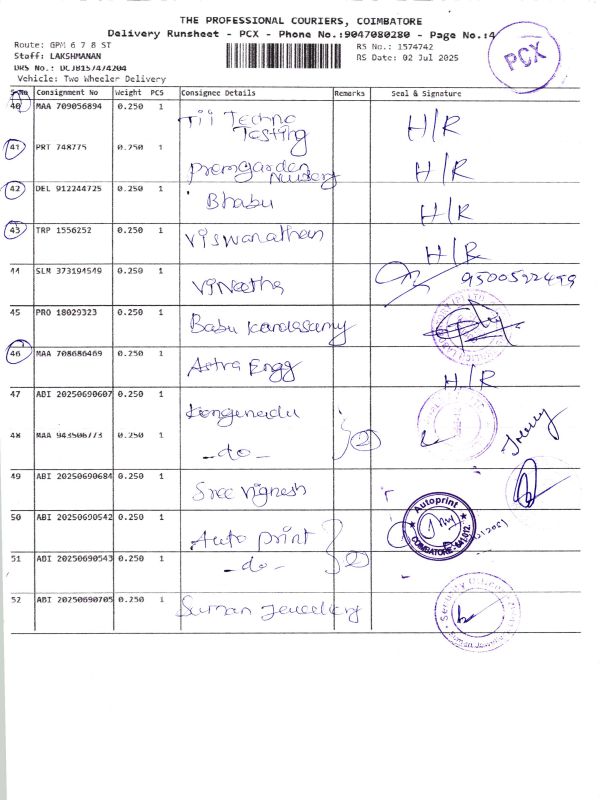 THE PROFESSIONAL COURIERS, COIMBATORE
Delivery Runsheet - PCX - Phone No.:9047080280 - Page No.:4
Route: GPM 6 7 8 ST
RS No.: 1574742
PCX
Staff: LAKSHMANAN
RS Date: 02 Jul 2025
DRS No.: DCJB157474204
Vehicle: Two Wheeler Delivery
S.No Consignment No Weight PCS Consignee Details Remarks Seal & Signature
40 MAA 709056894 0.250 1 Tii Techno Testing H/R
41 PRT 748775 0.250 1 Premgarden Nursery H/R
42 DEL 912244725 0.250 1 Bhabu H/R
43 TRP 1556252 0.250 1 Viswanathan H/R
44 SLM 373194549 0.250 1 Vineetha 9500522499
45 PRO 18029323 0.250 1 Babu Kandasamy
46 MAA 708686469 0.250 1 Astra Engg H/R
47 ABI 20250690607 0.250 1 Kongunadu
48 MAA 943506773 0.250 1 -do- 2
49 ABI 20250690684 0.250 1 Sree Vignesh
50 ABI 20250690542 0.250 1 Auto Print Autoprint COIMBATORE - 641 012.
51 ABI 20250690543 0.250 1 -do- 2
52 ABI 20250690705 0.250 1 Suman Jewellery